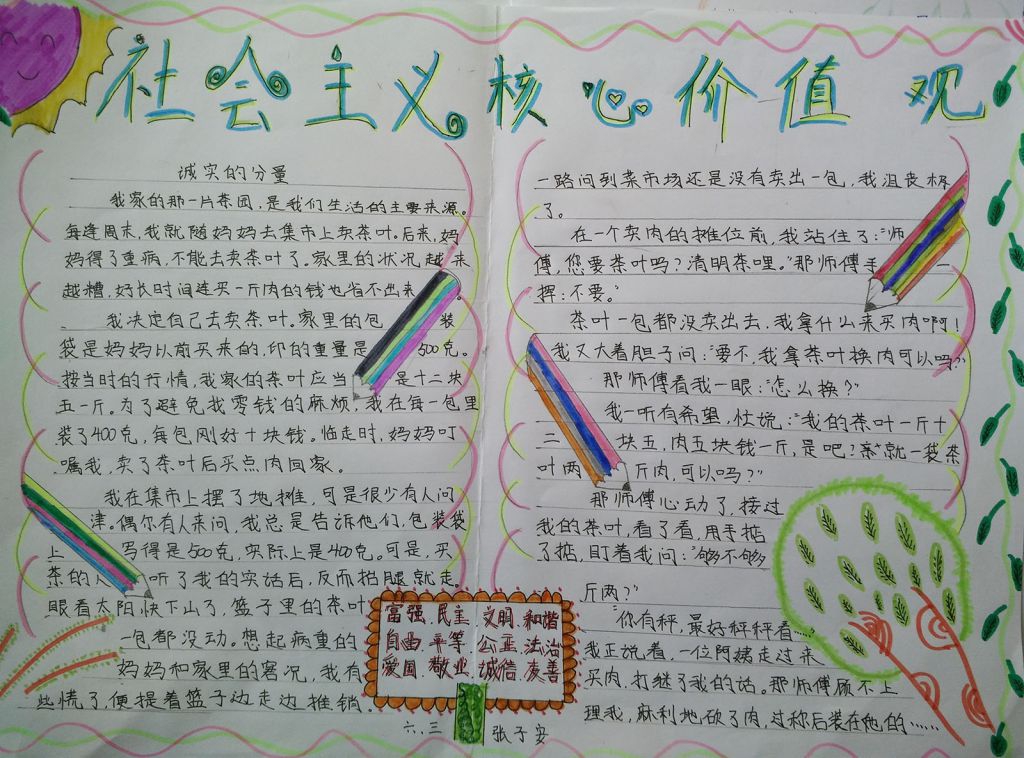 社会主义核心价值观
诚实的分量
我家的那一片茶园,是我们生活的主要来源。
每逢周末,我就随妈妈去集市上卖茶叶。后来,妈
妈得了重病,不能去卖茶叶了。家里的状况越来
越糟,好长时间连买一斤肉的钱也省不出来。
我决定自己去卖茶叶。家里的包装
袋是妈妈以前买来的,印的重量是500克。
按当时的行情,我家的茶叶应当是十二块
五一斤。为了避免找零钱的麻烦,我在每一包里
装了400克,每包刚好十块钱。临走时,妈妈叮
嘱我,卖了茶叶后买点肉回家。
我在集市上摆了地摊,可是很少有人问
津。偶尔有人来问,我总是告诉他们,包装袋
上写得是500克,实际上是400克。可是,买
茶的人听了我的实话后,反而抬腿就走。
眼看太阳快下山了,篮子里的茶叶
一包都没动。想起病重的
妈妈和家里的窘况,我有
些慌了,便提着篮子边走边推销。
一路问到菜市场还是没有卖出一包,我沮丧极
了。
在一个卖肉的摊位前,我站住了:“师
傅,您要茶叶吗?清明茶哩。”那师傅手一
挥:不要。”
茶叶一包都没卖出去,我拿什么来买肉啊!
我又大着胆子问:“要不,我拿茶叶换肉可以吗?”
那师傅看我一眼:“怎么换?”
我一听有希望,忙说:“我的茶叶一斤十
二块五,肉五块钱一斤,是吧?就一袋茶
叶两斤肉,可以吗?”
那师傅心动了,接过
我的茶叶,看了看,用手掂
了掂,盯着我问:“够不够
斤两?”
“你有秤,最好秤秤看……”
我正说着,一位阿姨走过来
买肉,打继了我的话。那师傅顾不上
理我,麻利地砍了肉,过称后装在他的……
富强.民主.文明.和谐
自由.平等.公正.法治
爱国.敬业.诚信.友善
六.三 张子安